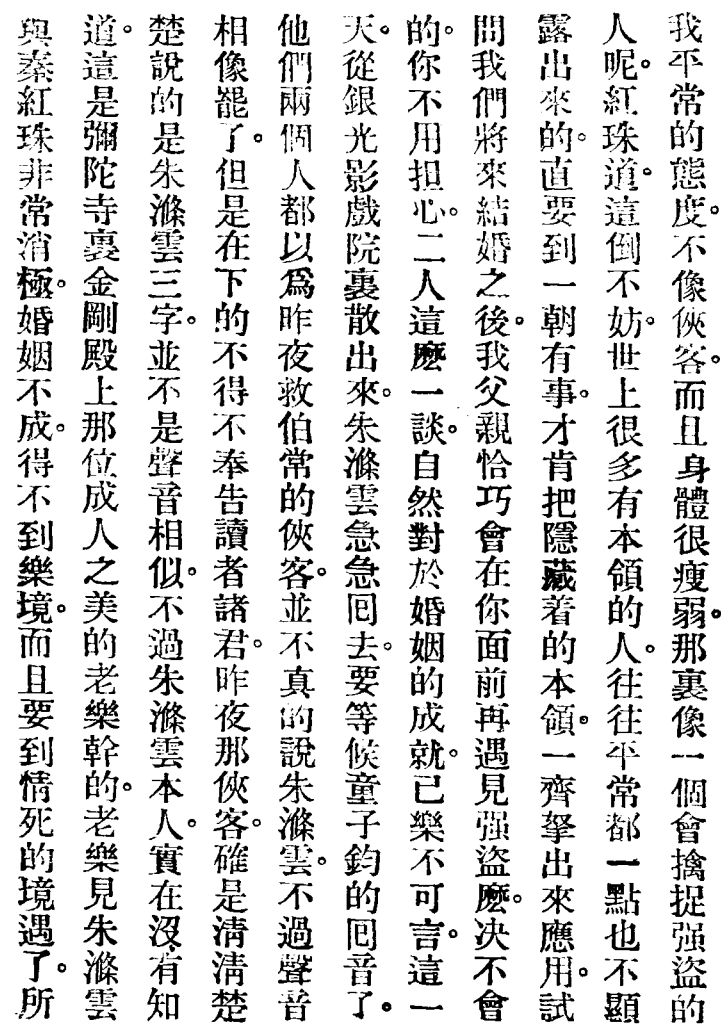 我平常的態度。不像俠客。而且身體很瘦弱。那裏像一個會擒捉强盜的
人呢。紅珠道。這倒不妨。世上很多有本領的人。往往平常都一點也不顯
露出來的。直要到一朝有事。才肯把隱藏着的本領。一齊拏出來應用。試
問我們將來結婚之後。我父親恰巧會在你面前再遇見强盜麽。决不會
的。你不用担心。二人這麽一談。自然對於婚姻的成就。已樂不可言。這一
天。從銀光影戲院裏散出來。朱滌雲急急囘去。要等候童子鈞的囘音了。
他們兩個人都以爲昨夜救伯常的俠客。並不真的說朱滌雲。不過聲音
相像罷了。但是在下的不得不奉告讀者諸君。昨夜那俠客。確是清清楚
楚說的是朱滌雲三字。並不是聲音相似。不過朱滌雲本人。實在沒有知
道。這是彌陀寺裏金剛殿上那位成人之美的老樂幹的。老樂見朱滌雲
與秦紅珠非常消極。婚姻不成。得不到樂境。而且要到情死的境遇了。所